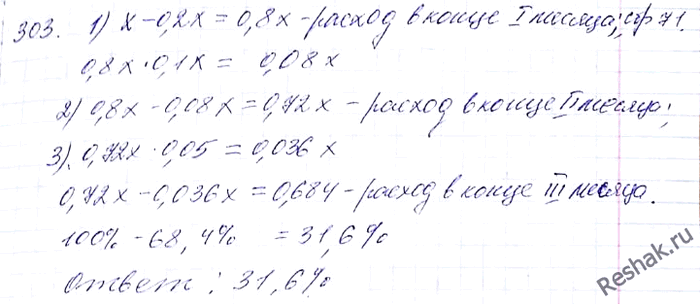 303. 1) x - 0,2x = 0,8x - расход в конце I месяца; стр 71.
0,8x · 0,1x = 0,08x
2) 0,8x - 0,08x = 0,72x - расход в конце II месяца;
3). 0,72x · 0,05 = 0,036x
0,72x - 0,036x = 0,684 - расход в конце III месяца.
100% - 68,4% = 31,6%
Ответ: 31,6%
Reshak.ru